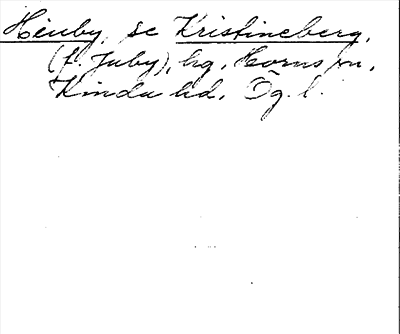 Hiuby, se Kristineberg,
(f. Juby), hg, Horns sn,
Kinda hd, Ög. l.